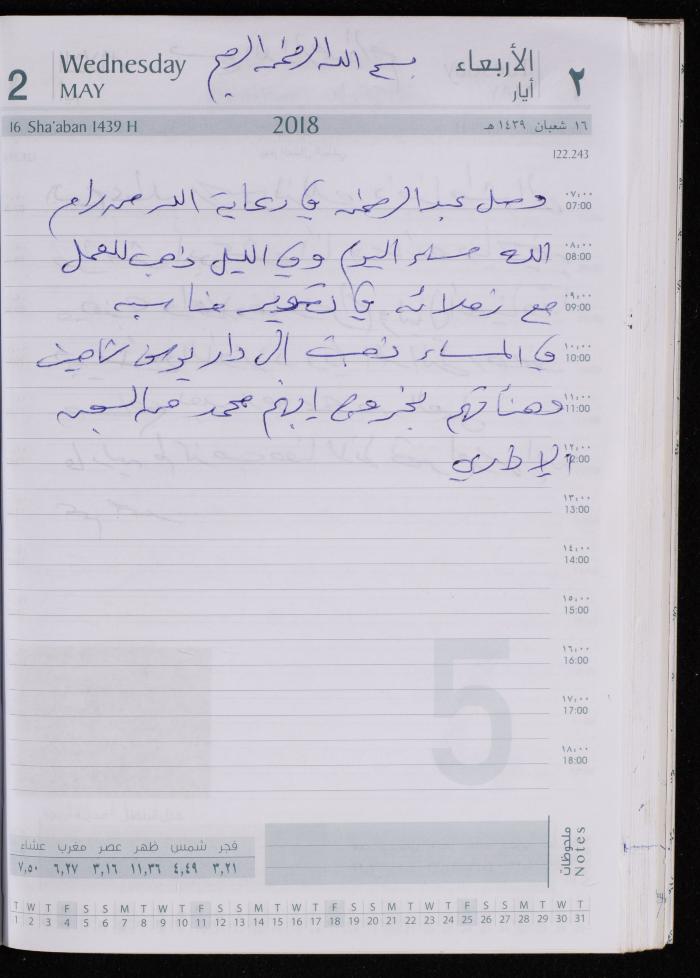 2
Wednesday
MAY
بسم الله الرحمن الرحيم
الأربعاء
أيار
٢
16 Sha'aban 1439 H
2018
١٦ شعبان ١٤٣٩ هـ
122.243
٠٧:٠٠
07:00
وصل عبد الرحمن في رعاية الله من رام
٠٨:٠٠
08:00
الله مساء اليوم وفي الليل ذهب للعمل
٠٩:٠٠
09:00
مع زملائه في تصوير مناسبه
١٠:٠٠
10:00
في المساء ذهبت الى دار يوسف شاهين
١١:٠٠
11:00
وهنأتهم بخروج ابنهم محمد من السجن
١٢:٠٠
12:00
الإداري
١٣:٠٠
13:00
١٤:٠٠
14:00
١٥:٠٠
15:00
١٦:٠٠
16:00
١٧:٠٠
17:00
١٨:٠٠
18:00
5
فجر شمس ظهر عصر مغرب عشاء
٣,٢١ ٤,٤٩ ١١,٣٦ ٣,١٦ ٦,٢٧ ٧,٥٠
ملحوظات
Notes
T W T F S S M T W T F S S M T W T F S S M T W T F S S M T W T
1 2 3 4 5 6 7 8 9 10 11 12 13 14 15 16 17 18 19 20 21 22 23 24 25 26 27 28 29 30 31